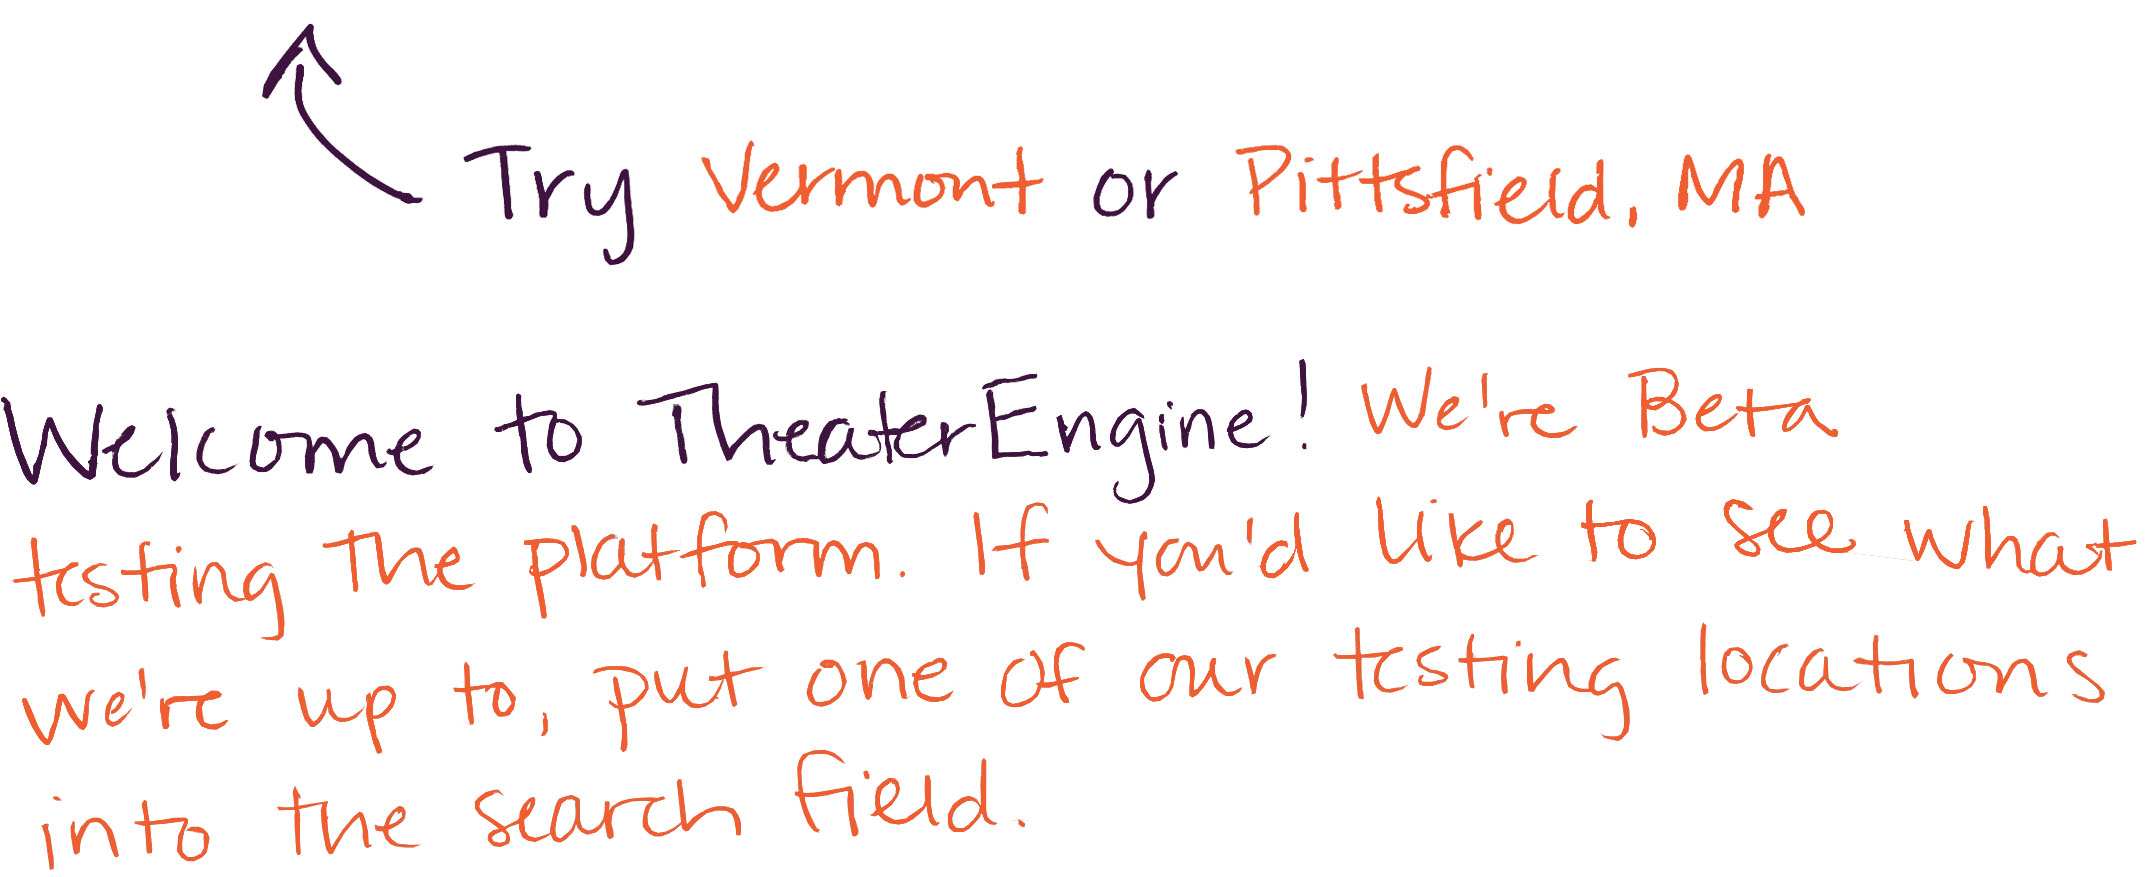 Try Vermont or Pittsfield, MA
Welcome to TheaterEngine! We're Beta
testing the platform. If you'd like to see what
we're up to, put one of our testing locations
into the search field.